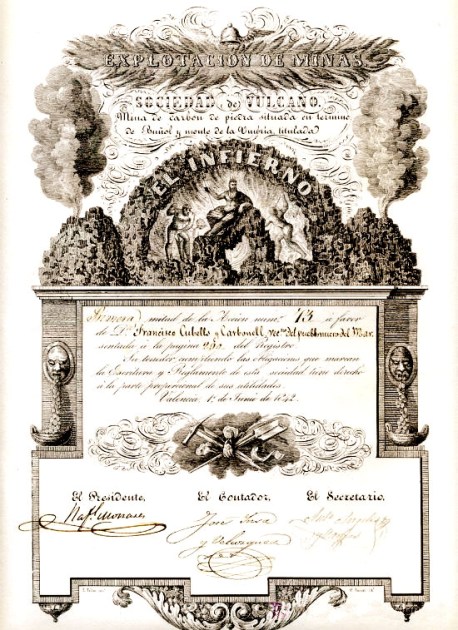 EXPLOTACION DE MINAS.
SOCIEDAD de VULCANO.
Mina de carbon de piedra situada en termino
de Buñol y monte de la Umbria, titulada
EL INFIERNO
Primera mitad de la Accion num.º 73 á favor
de D.n Francisco Cubells y Carbonell, vec.no del pueblo nuevo del Mar
sentada á la pagina del Registro.
Su tenedor cumpliendo las obligaciones que marcan
la Escritura y Reglamento de esta sociedad tiene derecho
á la parte proporcional de sus utilidades.
Valencia 1.º de Junio de 1842.
El Presidente, El Contador, El Secretario,
Raf.l Monares
Jose
y Velazquez